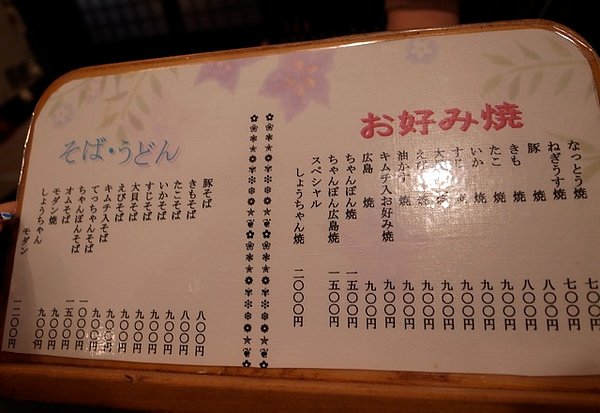 お好み焼
なっとう焼 七〇〇円
ねぎうす焼 七〇〇円
豚 焼 八〇〇円
きも 焼 八〇〇円
たこ 焼 九〇〇円
いか 焼 九〇〇円
すじ 焼 九〇〇円
大 焼 九〇〇円
えび 焼 九〇〇円
油かす 焼 九〇〇円
キムチ入お好み焼 九〇〇円
広島 焼 九〇〇円
ちゃんぽん焼 一五〇〇円
ちゃんぽん広島焼 一五〇〇円
スペシャル
しょうちゃん焼 二〇〇〇円
そば・うどん
豚そば 八〇〇円
きもそば 八〇〇円
たこそば 九〇〇円
いかそば 九〇〇円
すじそば 九〇〇円
大貝そば 九〇〇円
えびそば 九〇〇円
キムチ入そば 九〇〇円
てっちゃんそば
ちゃんぽんそば
オムそば
モダン焼 九〇〇円
しょうちゃん
モダン 一二〇〇円